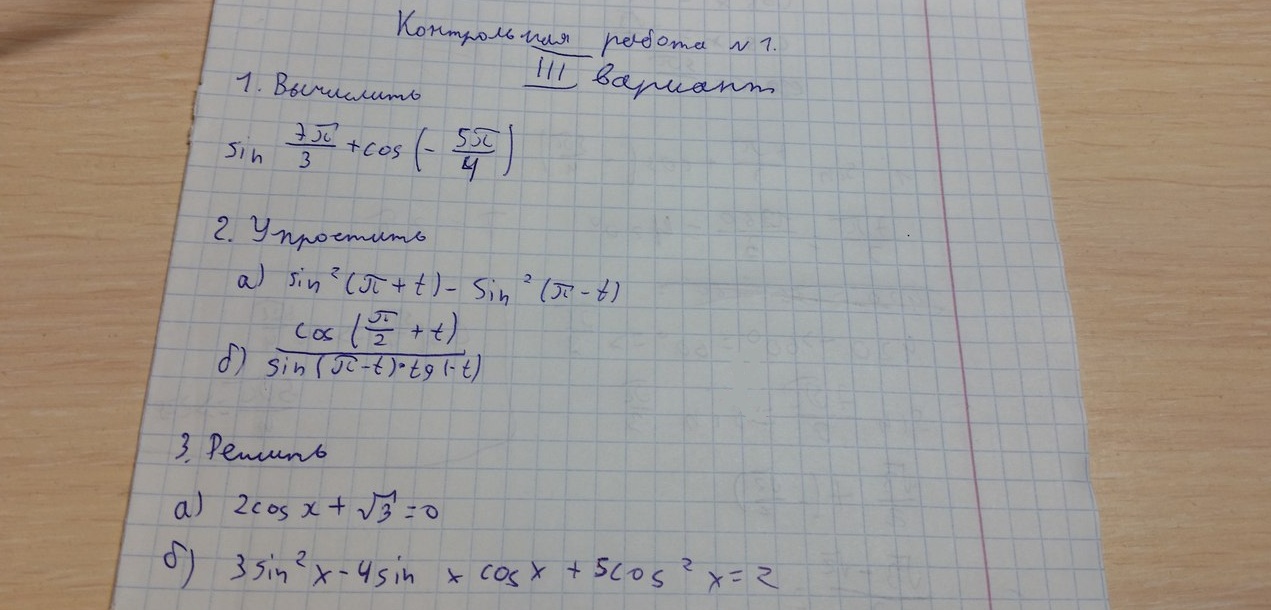 Контрольная работа №1.
III вариант
1. Вычислить
sin 7π/3 + cos (- 5π/4)
2. Упростить
а) sin²(π + t) - sin²(π - t)
б) cos (π/2 + t) / sin(π - t)·tg(-t)
3. Решить
а) 2cos x + √3 = 0
б) 3sin²x - 4sin x cos x + 5cos²x = 2